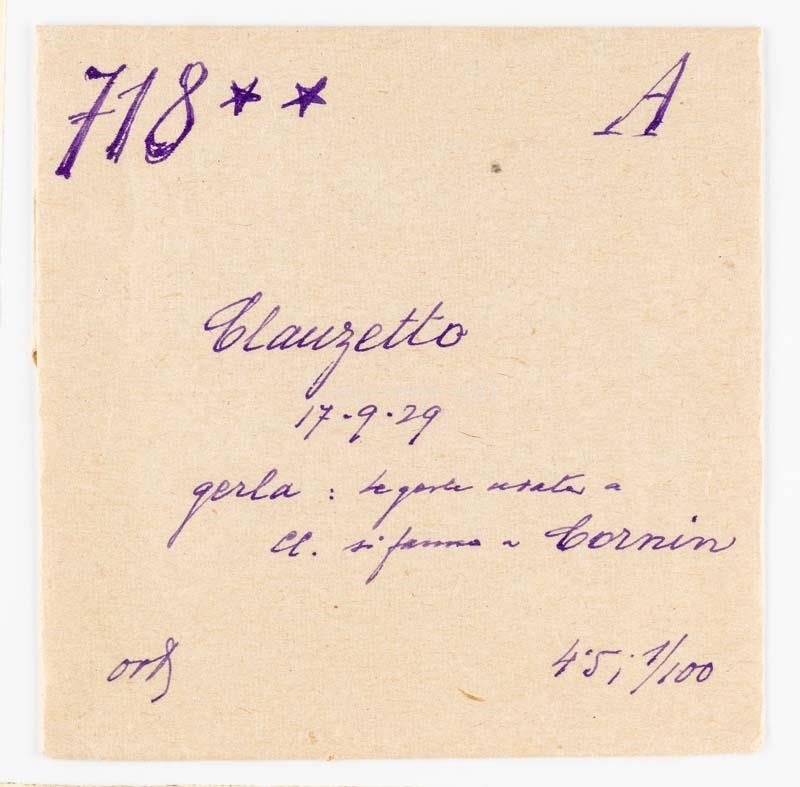 718** A
Clauzetto
17.9.29
gerla : le gerle usate a
Cl. si fanno a Cornin
4.5; 1/100